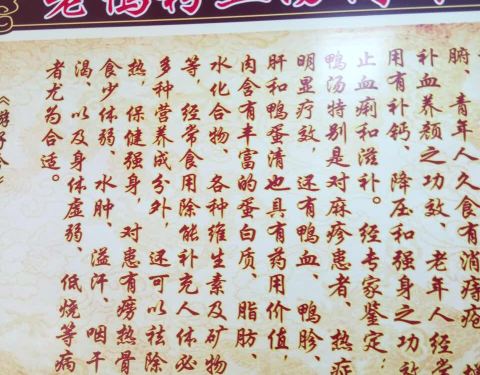 腑、青年人久食有消痔疮
补血养颜之功效、老年人经常
用有补钙、降压和强身之功效
止血痢和滋补。经专家鉴定：
鸭汤特别是对麻疹患者、热症
明显疗效，还有鸭血、鸭胗、
肝和鸭蛋清也具有药用价值，
肉含有丰富的蛋白质、脂肪、
水化合物、各种维生素及矿物
等，经常食用除能补充人体必
多种营养成分外，还可以祛除
热，保健强身，对患有痨热骨
食少体弱、水肿、溢汗、咽干
渴、以及身体虚弱、低烧等病
者尤为合适。